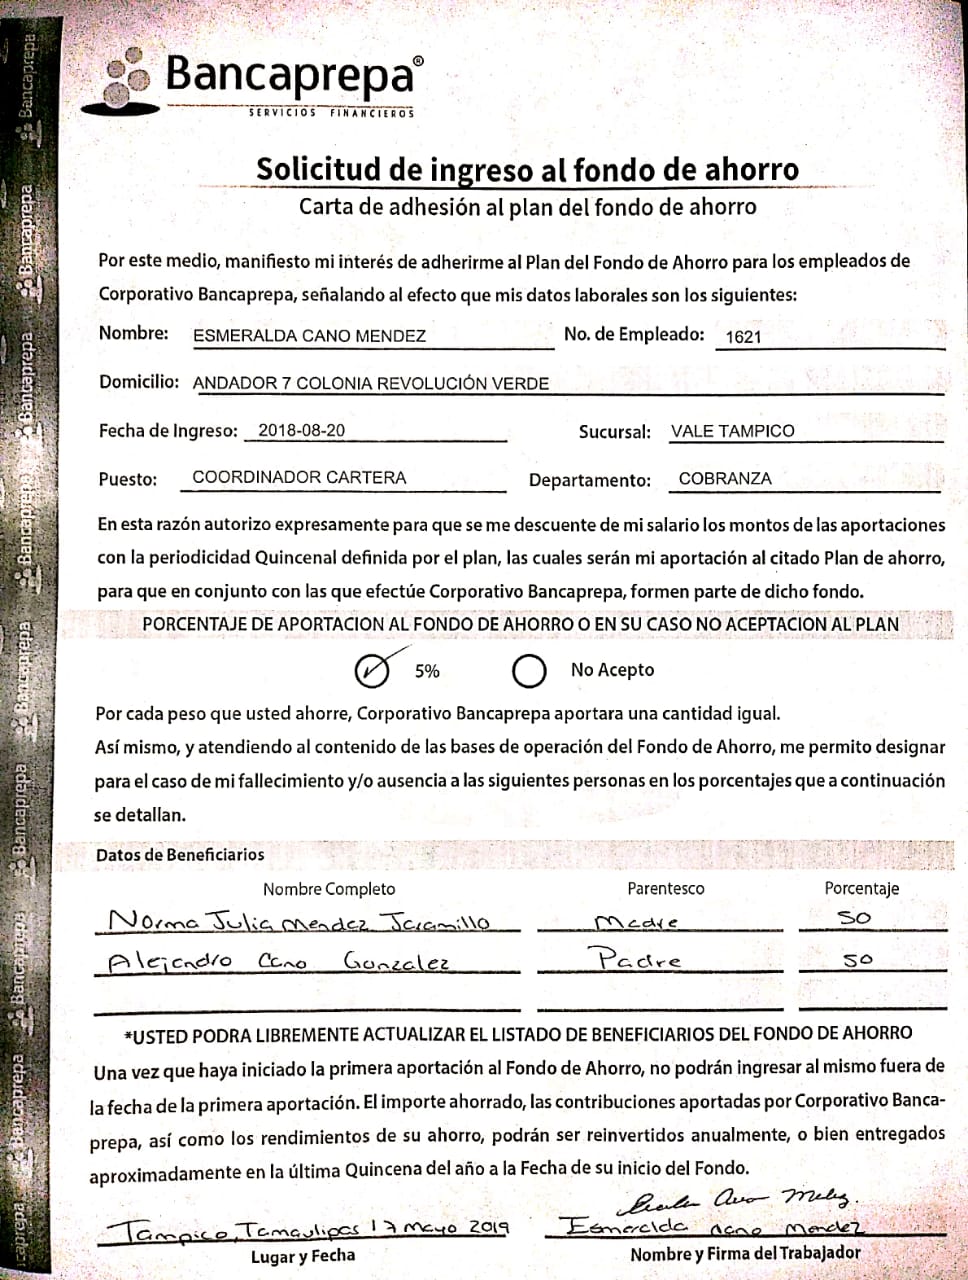 Bancaprepa®
SERVICIOS FINANCIEROS
Solicitud de ingreso al fondo de ahorro
Carta de adhesión al plan del fondo de ahorro
Por este medio, manifiesto mi interés de adherirme al Plan del Fondo de Ahorro para los empleados de
Corporativo Bancaprepa, señalando al efecto que mis datos laborales son los siguientes:
Nombre: ESMERALDA CANO MENDEZ No. de Empleado: 1621
Domicilio: ANDADOR 7 COLONIA REVOLUCIÓN VERDE
Fecha de Ingreso: 2018-08-20 Sucursal: VALE TAMPICO
Puesto: COORDINADOR CARTERA Departamento: COBRANZA
En esta razón autorizo expresamente para que se me descuente de mi salario los montos de las aportaciones
con la periodicidad Quincenal definida por el plan, las cuales serán mi aportación al citado Plan de ahorro,
para que en conjunto con las que efectúe Corporativo Bancaprepa, formen parte de dicho fondo.
PORCENTAJE DE APORTACION AL FONDO DE AHORRO O EN SU CASO NO ACEPTACION AL PLAN
5% No Acepto
Por cada peso que usted ahorre, Corporativo Bancaprepa aportara una cantidad igual.
Así mismo, y atendiendo al contenido de las bases de operación del Fondo de Ahorro, me permito designar
para el caso de mi fallecimiento y/o ausencia a las siguientes personas en los porcentajes que a continuación
se detallan.
Datos de Beneficiarios
Nombre Completo Parentesco Porcentaje
Norma Julia Mendez Jaramillo Madre 50
Alejandro Cano Gonzalez Padre 50
*USTED PODRA LIBREMENTE ACTUALIZAR EL LISTADO DE BENEFICIARIOS DEL FONDO DE AHORRO
Una vez que haya iniciado la primera aportación al Fondo de Ahorro, no podrán ingresar al mismo fuera de
la fecha de la primera aportación. El importe ahorrado, las contribuciones aportadas por Corporativo Banca-
prepa, así como los rendimientos de su ahorro, podrán ser reinvertidos anualmente, o bien entregados
aproximadamente en la última Quincena del año a la Fecha de su inicio del Fondo.
Tampico, Tamaulipas 17 Mayo 2019 Esmeralda Cano Mendez
Lugar y Fecha Nombre y Firma del Trabajador
Bancaprepa
Bancaprepa
Bancaprepa
Bancaprepa
Bancaprepa
Bancaprepa
Bancaprepa
Bancaprepa